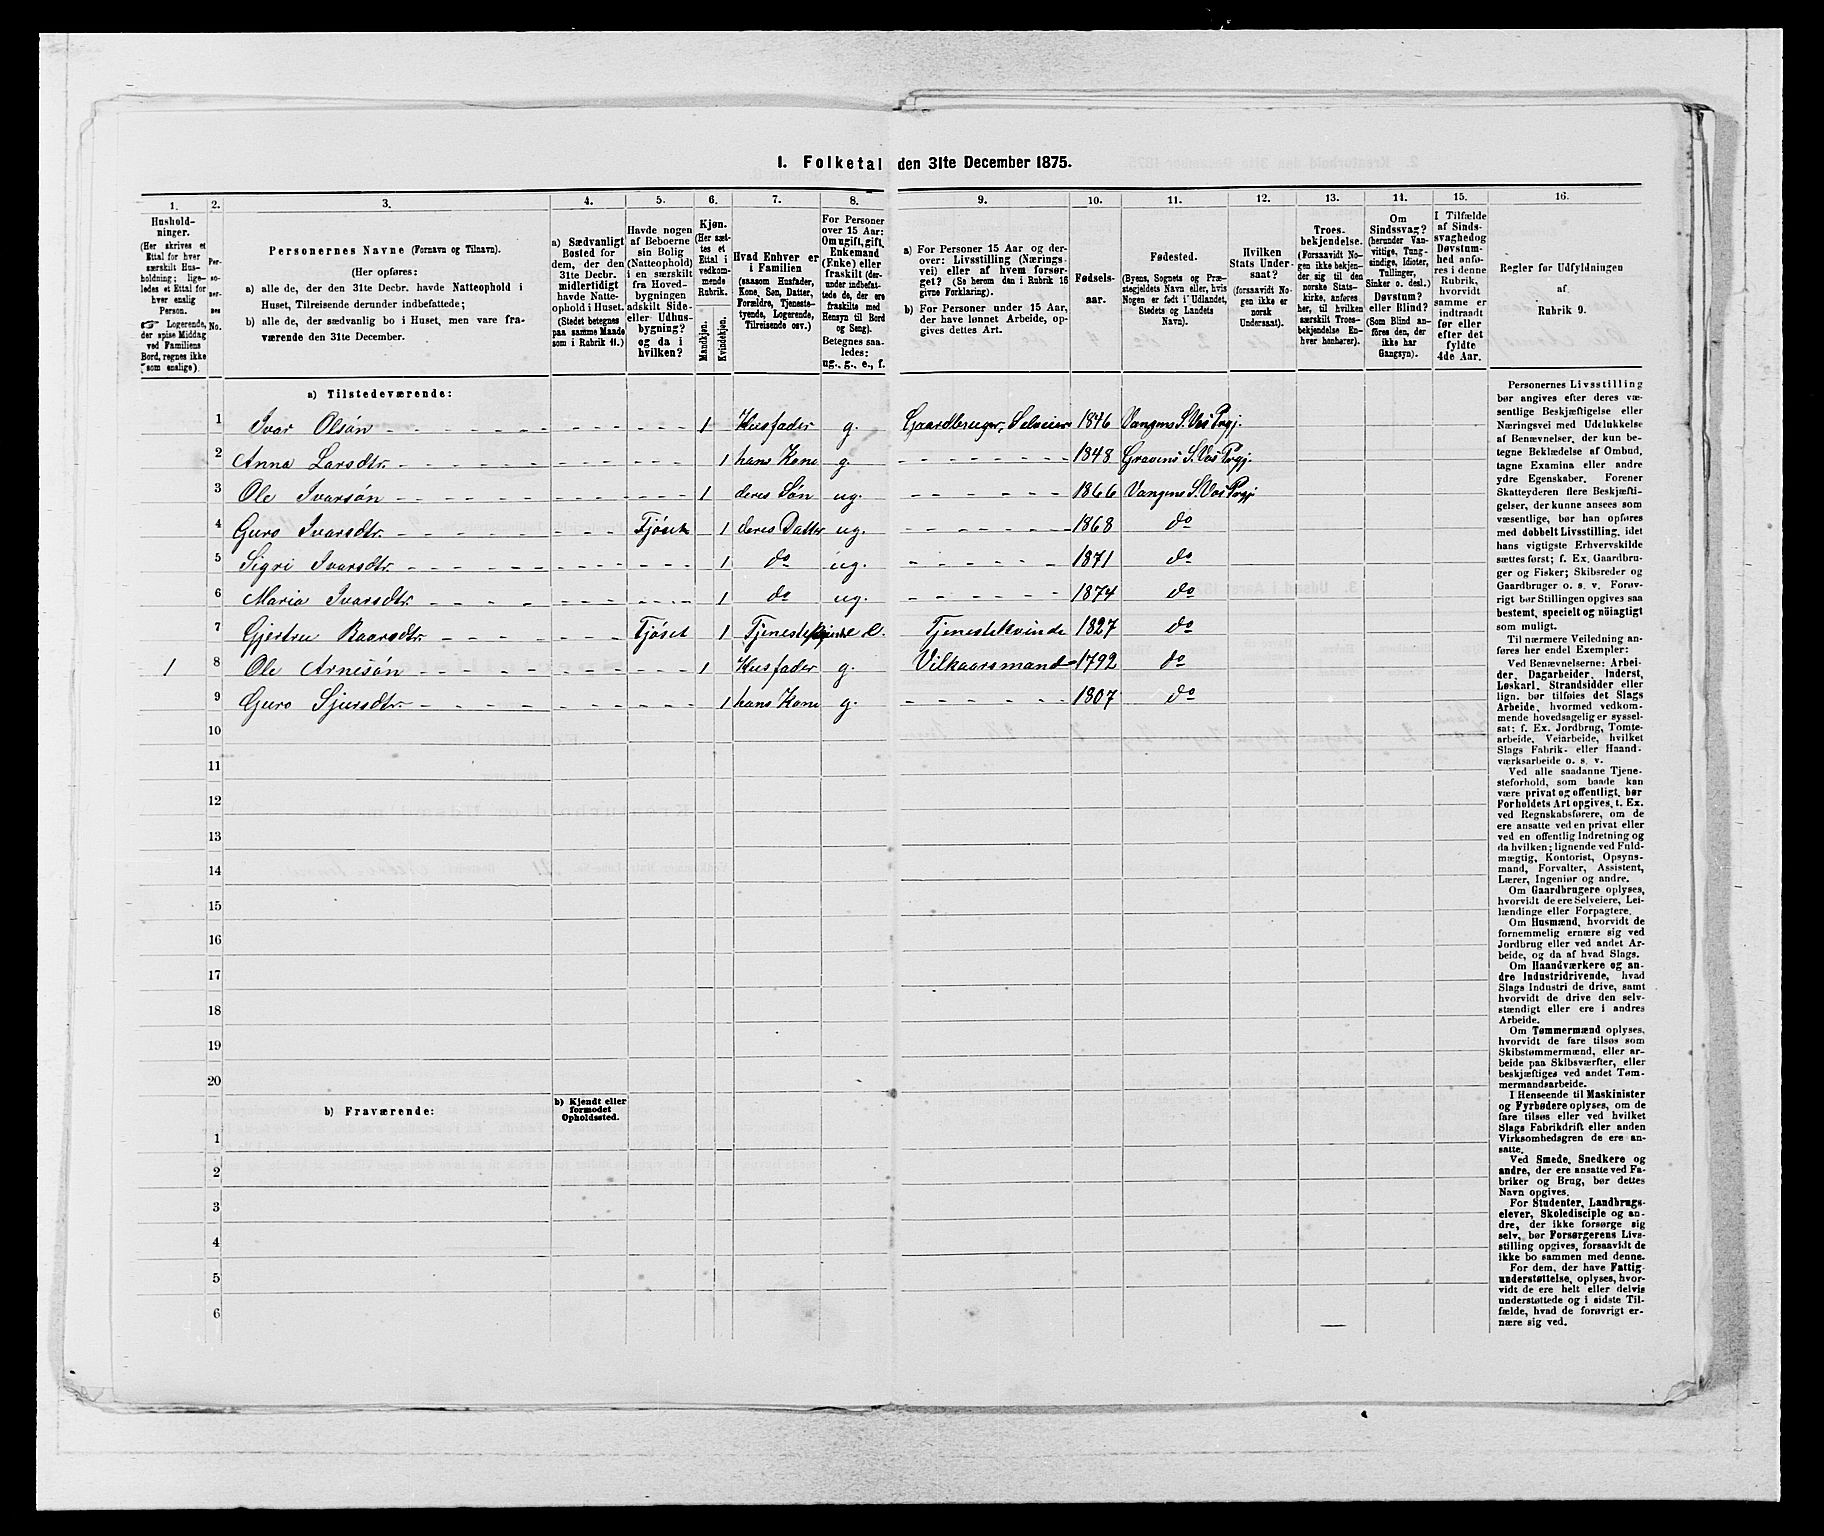 1. Folketal den 31te December 1875.
1. 2. 3. 4. 5. 6. 7. 8. 9. 10. 11. 12. 13. 14. 15. 16.
Hushold-
ninger.
(Her skrives et
Ettal for hver
særskilt Hus-
holdning; lige-
ledes et Ettal for
hver enslig
Person.
☞ Logerende,
der spise Middag
ved Familiens
Bord, regnes ikke
som enslige).
Per-
so-
ner-
nes
No.
Personernes Navne (Fornavn og Tilnavn).
(Her opføres:
a) alle de, der den 31te Decbr. havde Natteophold i
Huset, Tilreisende derunder indbefattede;
b) alle de, der sædvanlig bo i Huset, men vare fra-
værende den 31te December.
a) Sædvanligt
Bosted for
dem, der den
31te Decbr.
midlertidigt
havde Natte-
ophold i Huset.
(Stedet betegnes
paa samme Maade
som i Rubrik 11.)
Havde nogen
af Beboerne
sin Bolig
(Natteophold)
i en særskilt
fra Hoved-
bygningen
adskilt Side-
eller Udhus-
bygning?
og da i
hvilken?
Kjøn.
(Her sæt-
tes et
Ettal i
vedkom-
mende
Rubrik.
Mandkjøn.
Kvindekjøn.
Hvad Enhver er
i Familien
(saasom Husfader,
Kone, Søn, Datter,
Forældre, Tjeneste-
tyende, Logerende,
Tilreisende osv.)
For Personer
over 15 Aar:
Om ugift, gift,
Enkemand
(Enke) eller
fraskilt (der-
under indbefat-
tede de, der ere
fraskilte med
Hensyn til Bord
og Seng).
Betegnes saa-
ledes:
ug., g., e., f.
a) For Personer 15 Aar og der-
over: Livsstilling (Nærings-
vei) eller af hvem forsør-
get? (Se herom den i Rubrik 16
givne Forklaring).
b) For Personer under 15 Aar,
der have lønnet Arbeide, op-
gives dettes Art.
Fødsels-
aar.
Fødested.
(Byens, Sognets og Præ-
stegjeldets Navn, eller, hvis
Nogen er født i Udlandet,
Stedets og Landets
Navn).
Hvilken
Stats Under-
saat?
(forsaavidt No-
gen ikke er
norsk
Undersaat).
Troes-
bekjendelse.
(Forsaavidt No-
gen ikke bekjen-
der sig til den
norske Stats-
kirke, anføres
her, til hvilken
særskilt Troes-
bekjendelse En-
hver henhører).
Om
Sindssvag?
(herunder Van-
vittige, Tung-
sindige, Idioter,
Tullinger,
Sinker o. desl.)
Døvstum?
eller Blind?
(Som Blind an-
føres den, der
ikke har
Gangsyn).
I Tilfælde
af Sinds-
svaghed og
Døvstum-
hed anfø-
res i denne
Rubrik,
hvorvidt
samme er
indtraadt
før eller
efter det
fyldte
4de Aar.
Regler for Udfyldningen
af
Rubrik 9.
a) Tilstedeværende:
1 Ivar Olsön 1 Husfader g. Gaardbruger, Selveier 1846 Vangens S. Vos Prgj.
2 Anna Larsdtr. 1 hans Kone g. 1848 Gravens S. Vos Prgj.
3 Ole Ivarsön 1 deres Søn ug. 1866 Vangens S. Vos Prgj
4 Guro Ivarsdtr. Fjöset 1 deres Datter ug. 1868 do
5 Sigri Ivarsdtr. 1 do ug. 1871 do
6 Maria Ivarsdtr. 1 do ug. 1874 do
7 Gjertru Baarsdtr. Fjöset 1 e. Tjenestekvinde 1827 do
1 8 Ole Arnesön 1 Husfader g. Vilkaarsmand 1792 do
9 Guro Sjursdtr. 1 hans Kone g. 1807 do
10
11
12
13
14
15
16
17
18
19
20
b) Fraværende:
b) Kjendt eller
formodet
Opholdssted.
1
2
3
4
5
6
Personernes Livsstilling
bør angives efter deres væ-
sentlige Beskjæftigelse eller
Næringsvei med Udelukkelse
af Benævnelser, der kun be-
tegne Beklædelse af Ombud,
tagne Examina eller andre
ydre Egenskaber. Forener
Skatteyderen flere Beskjæfti-
gelser, der kunne ansees som
væsentlige, bør han opføres
med dobbelt Livsstilling, idet
hans vigtigste Erhvervskilde
sættes først; f. Ex. Gaardbru-
ger og Fisker; Skibsreder og
Gaardbruger o. s. v. Forøv-
rigt bør Stillingen opgives saa
bestemt, specielt og nöiagtigt
som muligt.
Til nærmere Veiledning an-
føres her endel Exempler:
Ved Benævnelserne: Arbei-
der, Dagarbeider, Inderst,
Løskarl, Strandsidder eller
lign. bør tilføies det Slags
Arbeide, hvormed vedkom-
mende hovedsagelig er syssel-
sat; f. Ex. Jordbrug, Tomte-
arbeide, Veiarbeide, hvilket
Slags Fabrik- eller Haand-
værksarbeide o. s. v.
Ved alle saadanne Tjene-
steforhold, som baade kan
være privat og offentligt, bør
Forholdets Art opgives, t. Ex.
ved Regnskabsførere, om de
ere ansatte ved en privat eller
ved en offentlig Indretning og
da hvilken; lignende ved Fuld-
mægtig, Kontorist, Opsyns-
mand, Forvalter, Assistent,
Lærer, Ingeniør og andre.
Om Gaardbrugere oplyses,
hvorvidt de ere Selveiere, Lei-
lændinge eller Forpagtere.
Om Husmænd, hvorvidt de
fornemmelig ernære sig ved
Jordbrug eller ved andet Ar-
beide, og da af hvad Slags.
Om Haandværkere og an-
dre Industridrivende, hvad
Slags Industri de drive, samt
hvorvidt de drive den selv-
stændigt eller ere i andres
Arbeide.
Om Tømmermænd oplyses,
hvorvidt de fare tilsøs som
Skibstømmermænd, eller ar-
beide paa Skibsværfter, eller
beskjæftiges ved andet Tøm-
mermandsarbeide.
I Henseende til Maskinister
og Fyrbødere oplyses, om de
fare tilsøs eller ved hvilket
Slags Fabrikdrift eller anden
Virksomhedsgren de ere an-
satte.
Ved Smede, Snedkere og
andre, der ere ansatte ved Fa-
briker og Brug, bør dettes
Navn opgives.
For Studenter, Landbrugs-
elever, Skoledisciple og an-
dre, der ikke forsørge sig
selv, bør Forsørgerens Livs-
stilling opgives, forsaavidt de
ikke bo sammen med denne.
For dem, der have Fattig-
understøttelse, oplyses, hvor-
vidt de ere helt eller delvis
understøttede og i sidste Til-
fælde, hvad de forøvrigt er-
nære sig ved.